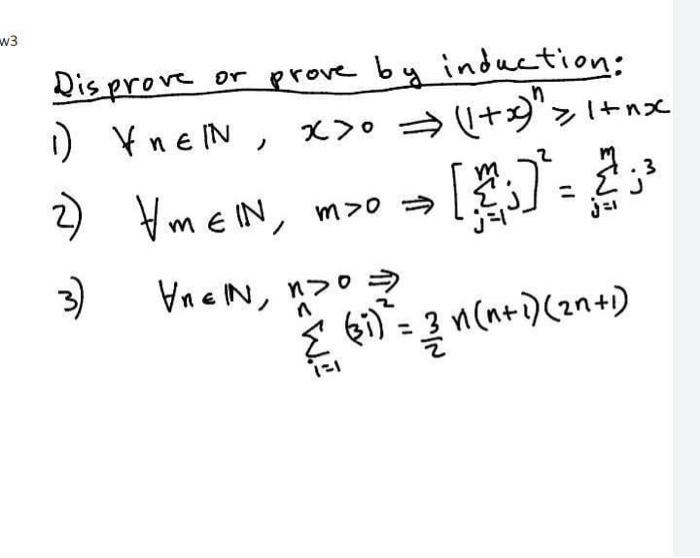 w3
Disprove or prove by induction:
1) ∀ n ∈ ℕ, x > 0 ⇒ (1+x)^n ≥ 1 + nx
2) ∀ m ∈ ℕ, m > 0 ⇒ [∑_{j=1}^{m} j]^2 = ∑_{j=1}^{m} j^3
3) ∀ n ∈ ℕ, n > 0 ⇒
∑_{i=1}^{n} (3i)^2 = 3/2 n(n+1)(2n+1)